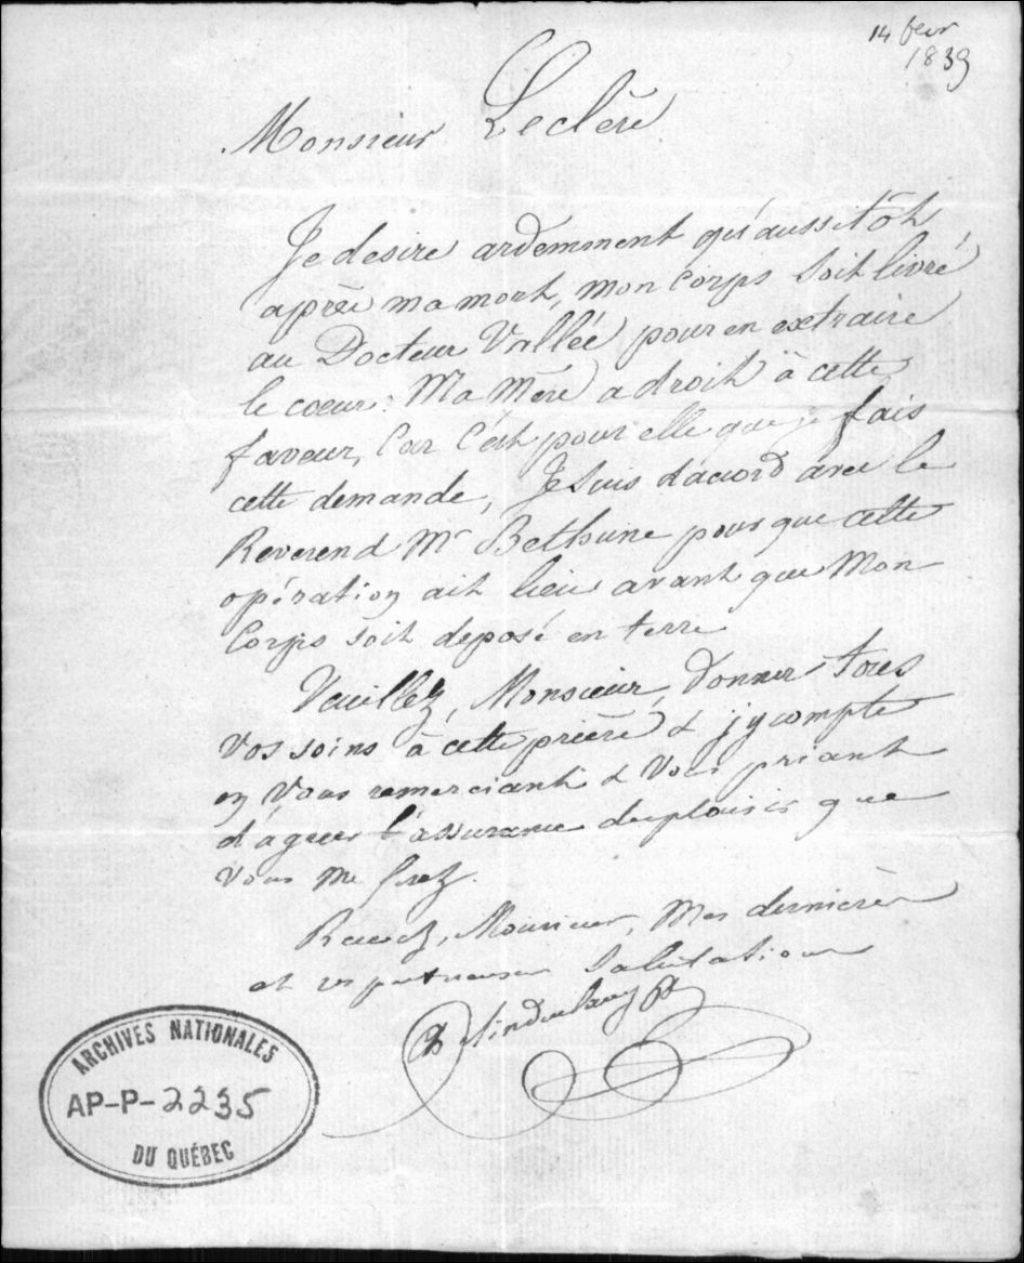 14 fevr
1839
Monsieur Leclère
Je desire ardemment qu'aussitôt
après ma mort, mon Corps soit livré
au Docteur Vallée pour en extraire
le coeur. Ma Mère a droit à cette
faveur, Car C'est pour elle que je fais
cette demande, Je suis d'accord avec le
Reverend Mr Bethune pour que cette
opération ait lieu avant que Mon
Corps soit deposé en terre
Veuillez, Monsieur, donner tous
vos soins à cette prière & j'y compte
en Vous remerciant & Vous priant
d'agreer l'assurance du plaisir que
vous me frez.
Recevez, Monsieur, Mes dernières
et respectueuses Salutations
Hindenlang
ARCHIVES NATIONALES
AP-P-2235
DU QUÉBEC